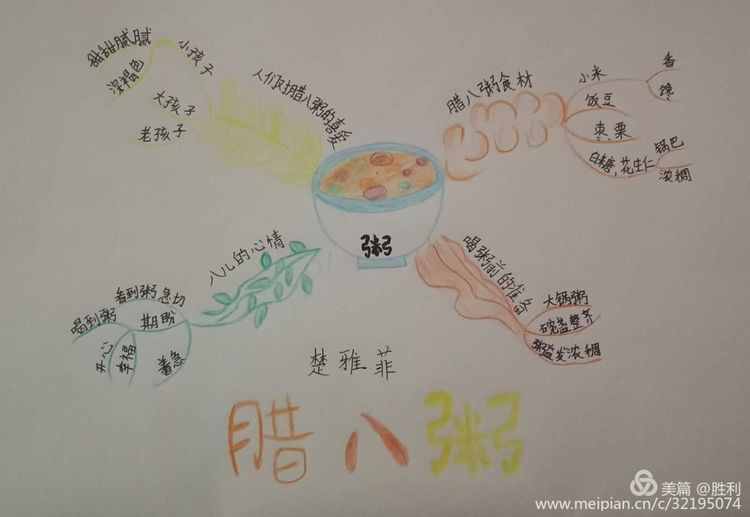 甜甜腻腻
深褐色
小孩子
大孩子
老孩子
人们对腊八粥的喜爱
腊八粥食材
小米
香
馋
饭豆
枣、栗
白糖,花生仁
锅巴
浓稠
粥
八儿的心情
看到粥
急切
喝到粥
期盼
开心
幸福
着急
喝粥前的准备
大锅粥
碗盏整齐
粥益发浓稠
楚雅菲
腊八粥
美篇 @胜利
www.meipian.cn/c/32195074